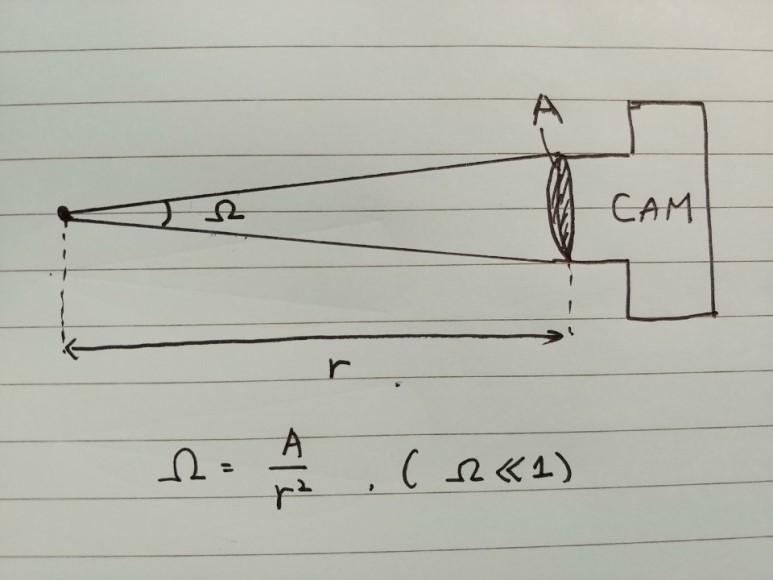 A
Ω
CAM
r
Ω = A/r² . ( Ω ≪ 1 )